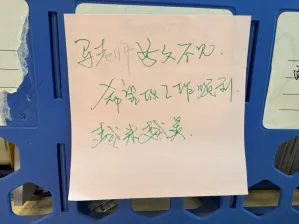 马老师好久不见.
希望你工作顺利.
越来越美.